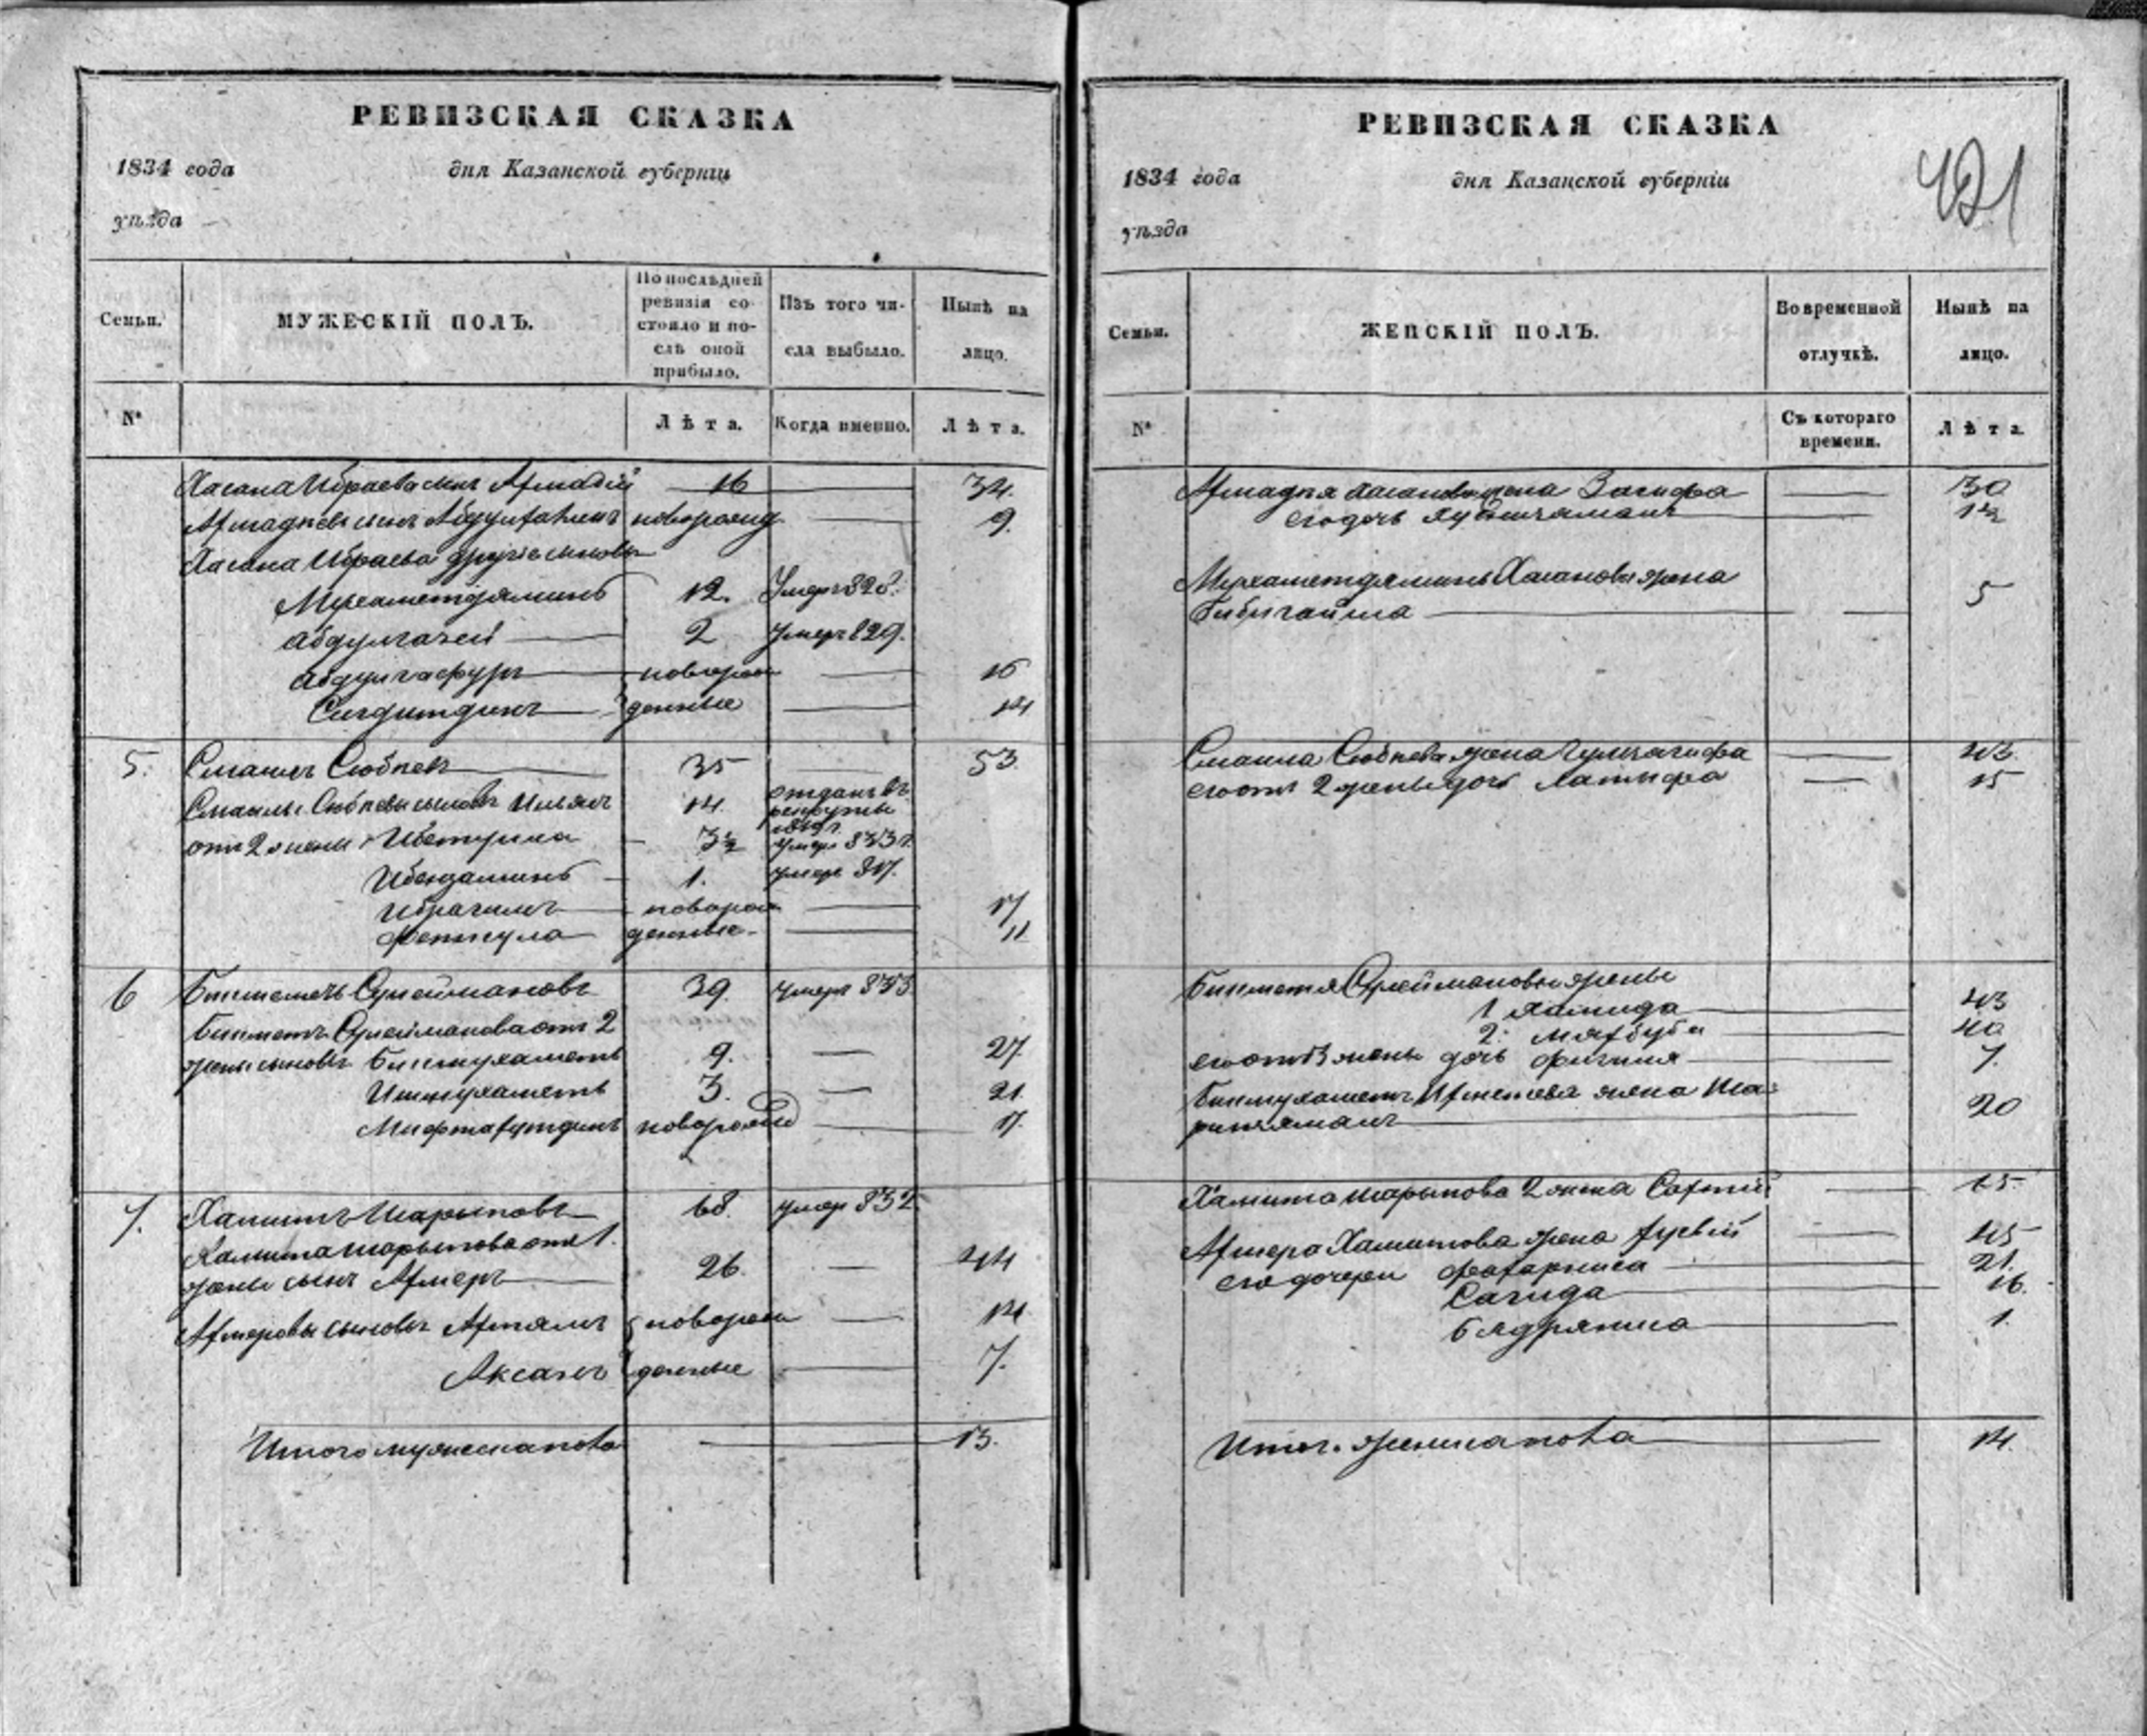 РЕВИЗСКАЯ СКАЗКА
1834 года
дня Казанской губерніи
уѣзда
Семьи.
МУЖЕСКІЙ ПОЛЪ.
По послѣдней ревизіи состояло и послѣ оной прибыло.
Изъ того числа выбыло.
Нынѣ на лицо.
№
Лѣта.
Когда именно.
Лѣта.
Хасана Ибраева сынъ Ахмадій 16 34.
Ахмадѣевъ сынъ новорожд 9.
Хасана Ибраева другіе сыновья
Мухаметдяминъ 12. Умеръ 828.
Абдулгазей 2 умеръ 829.
Абдулгафуръ новорож 16
денные 14
5. Смаилъ Сюбпевъ 35 53
Смаилы Сюбпевы сыновья Ильясъ 14. отданъ въ рекруты
отъ 2 жены 3½ умеръ 833 г.
1. умеръ 817.
Ибрагимъ новорож 17
Феткула денные 11
6 Бикметъ Сулеймановъ 39. умеръ 833
Бикметъ Сулейманова отъ 2
жены сыновья Бикмухаметъ 9. 27.
Ишмухаметъ 3. 21.
Мифтахутдинъ новорожд 17.
7. Хамитъ Шарыповъ 68. умеръ 832
Хамита Шарыпова отъ 1.
жены сынъ Ахмеръ 26. 44
Ахмеровы сыновья Ахтямъ новорож 14
Аксанъ денные 7.
Итого мужеска пола 13.
РЕВИЗСКАЯ СКАЗКА
421
1834 года
дня Казанской губерніи
уѣзда
Семьи.
ЖЕНСКІЙ ПОЛЪ.
Во временной отлучкѣ.
Нынѣ на лицо.
№
Съ котораго времени.
Лѣта.
Ахмадѣя Хасанова жена Загифа 30
его дочь 1½
Мухаметдяминъ Хасановы жена
5
Смаила Сюбпева жена 43
его отъ 2 жены дочь Латифа 15
Бикметя Сулеймановы жены
1 Хамида 43
2. Махбуба 40
его отъ 3 жены дочь 7.
Бикмухаметъ жена Ша-
20
Хамита Шарыпова 2 жена 65
Ахмера Хамитова жена 45
его дочери 21.
Сагида 16.
Бадряниса 1.
Итог. женска пола 14.